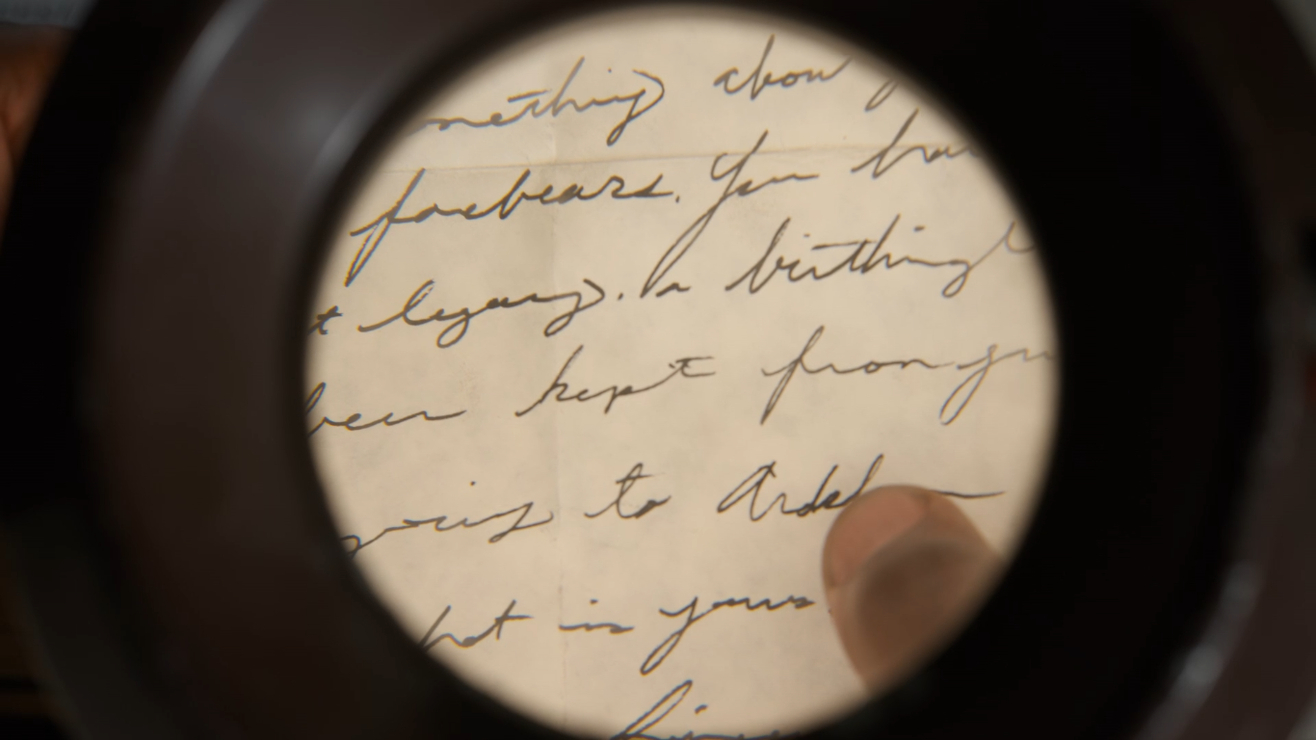 mething abou
forbears. You hav
t legacy. A birthing
been kept from yu
going to Ardel
hat is yours